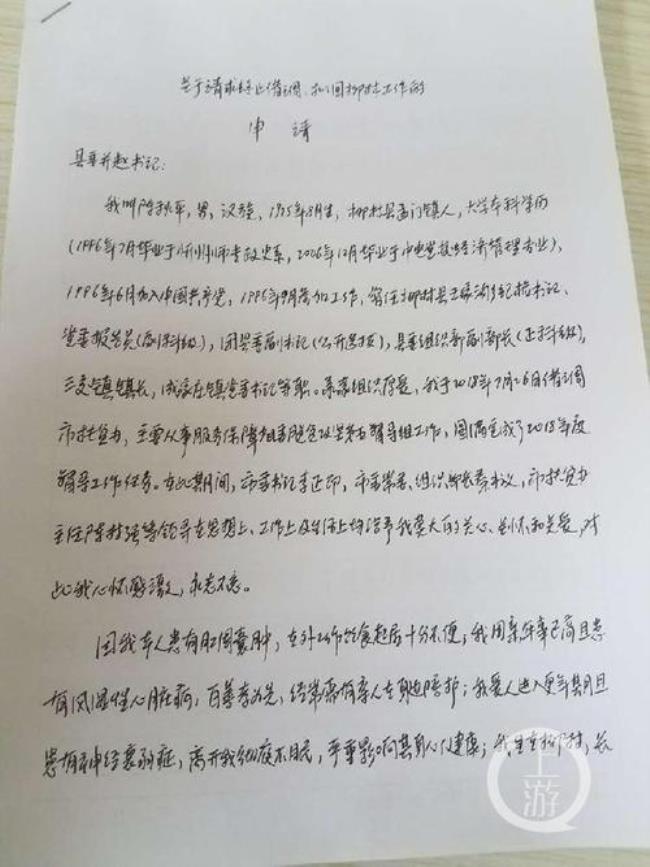 关于请求终止借调、扣回柳林工作的
申请
县委并赵书记：
我叫陈秋平，男，汉族，1975年8月生，柳林县孟门镇人，大学本科学历
（1996年7月毕业于忻州师专政史系，2006年12月毕业于中央党校经济管理专业），
1996年6月加入中国共产党，1995年9月参加工作，曾任柳林县王家沟乡纪检书记、
党委报告员（副科级），团县委副书记（公开选拔），县委组织部副部长（正科级），
三交镇镇长，成家庄镇党委书记等职。承蒙组织厚爱，我于2018年7月26日借调
市扶贫办，主要从事服务保障省委脱贫攻坚第五督导组工作，圆满完成了2018年度
督导工作任务。在此期间，市委书记李正印，市委常委、组织部长秦书义，市扶贫办
主任陈树强等领导在思想上、工作上及生活上均给予我莫大的关心、关怀和关爱，对
此我心怀感激，永志不忘。
因我本人患有肛周囊肿，在外工作饮食起居十分不便；我母亲年事已高且患
有风湿性心脏病，百善孝为先，经常需有亲人在身边陪护；我爱人进入更年期且
患有神经衰弱症，离开我彻夜不眠，严重影响其身心健康；我生在柳林，长
上游